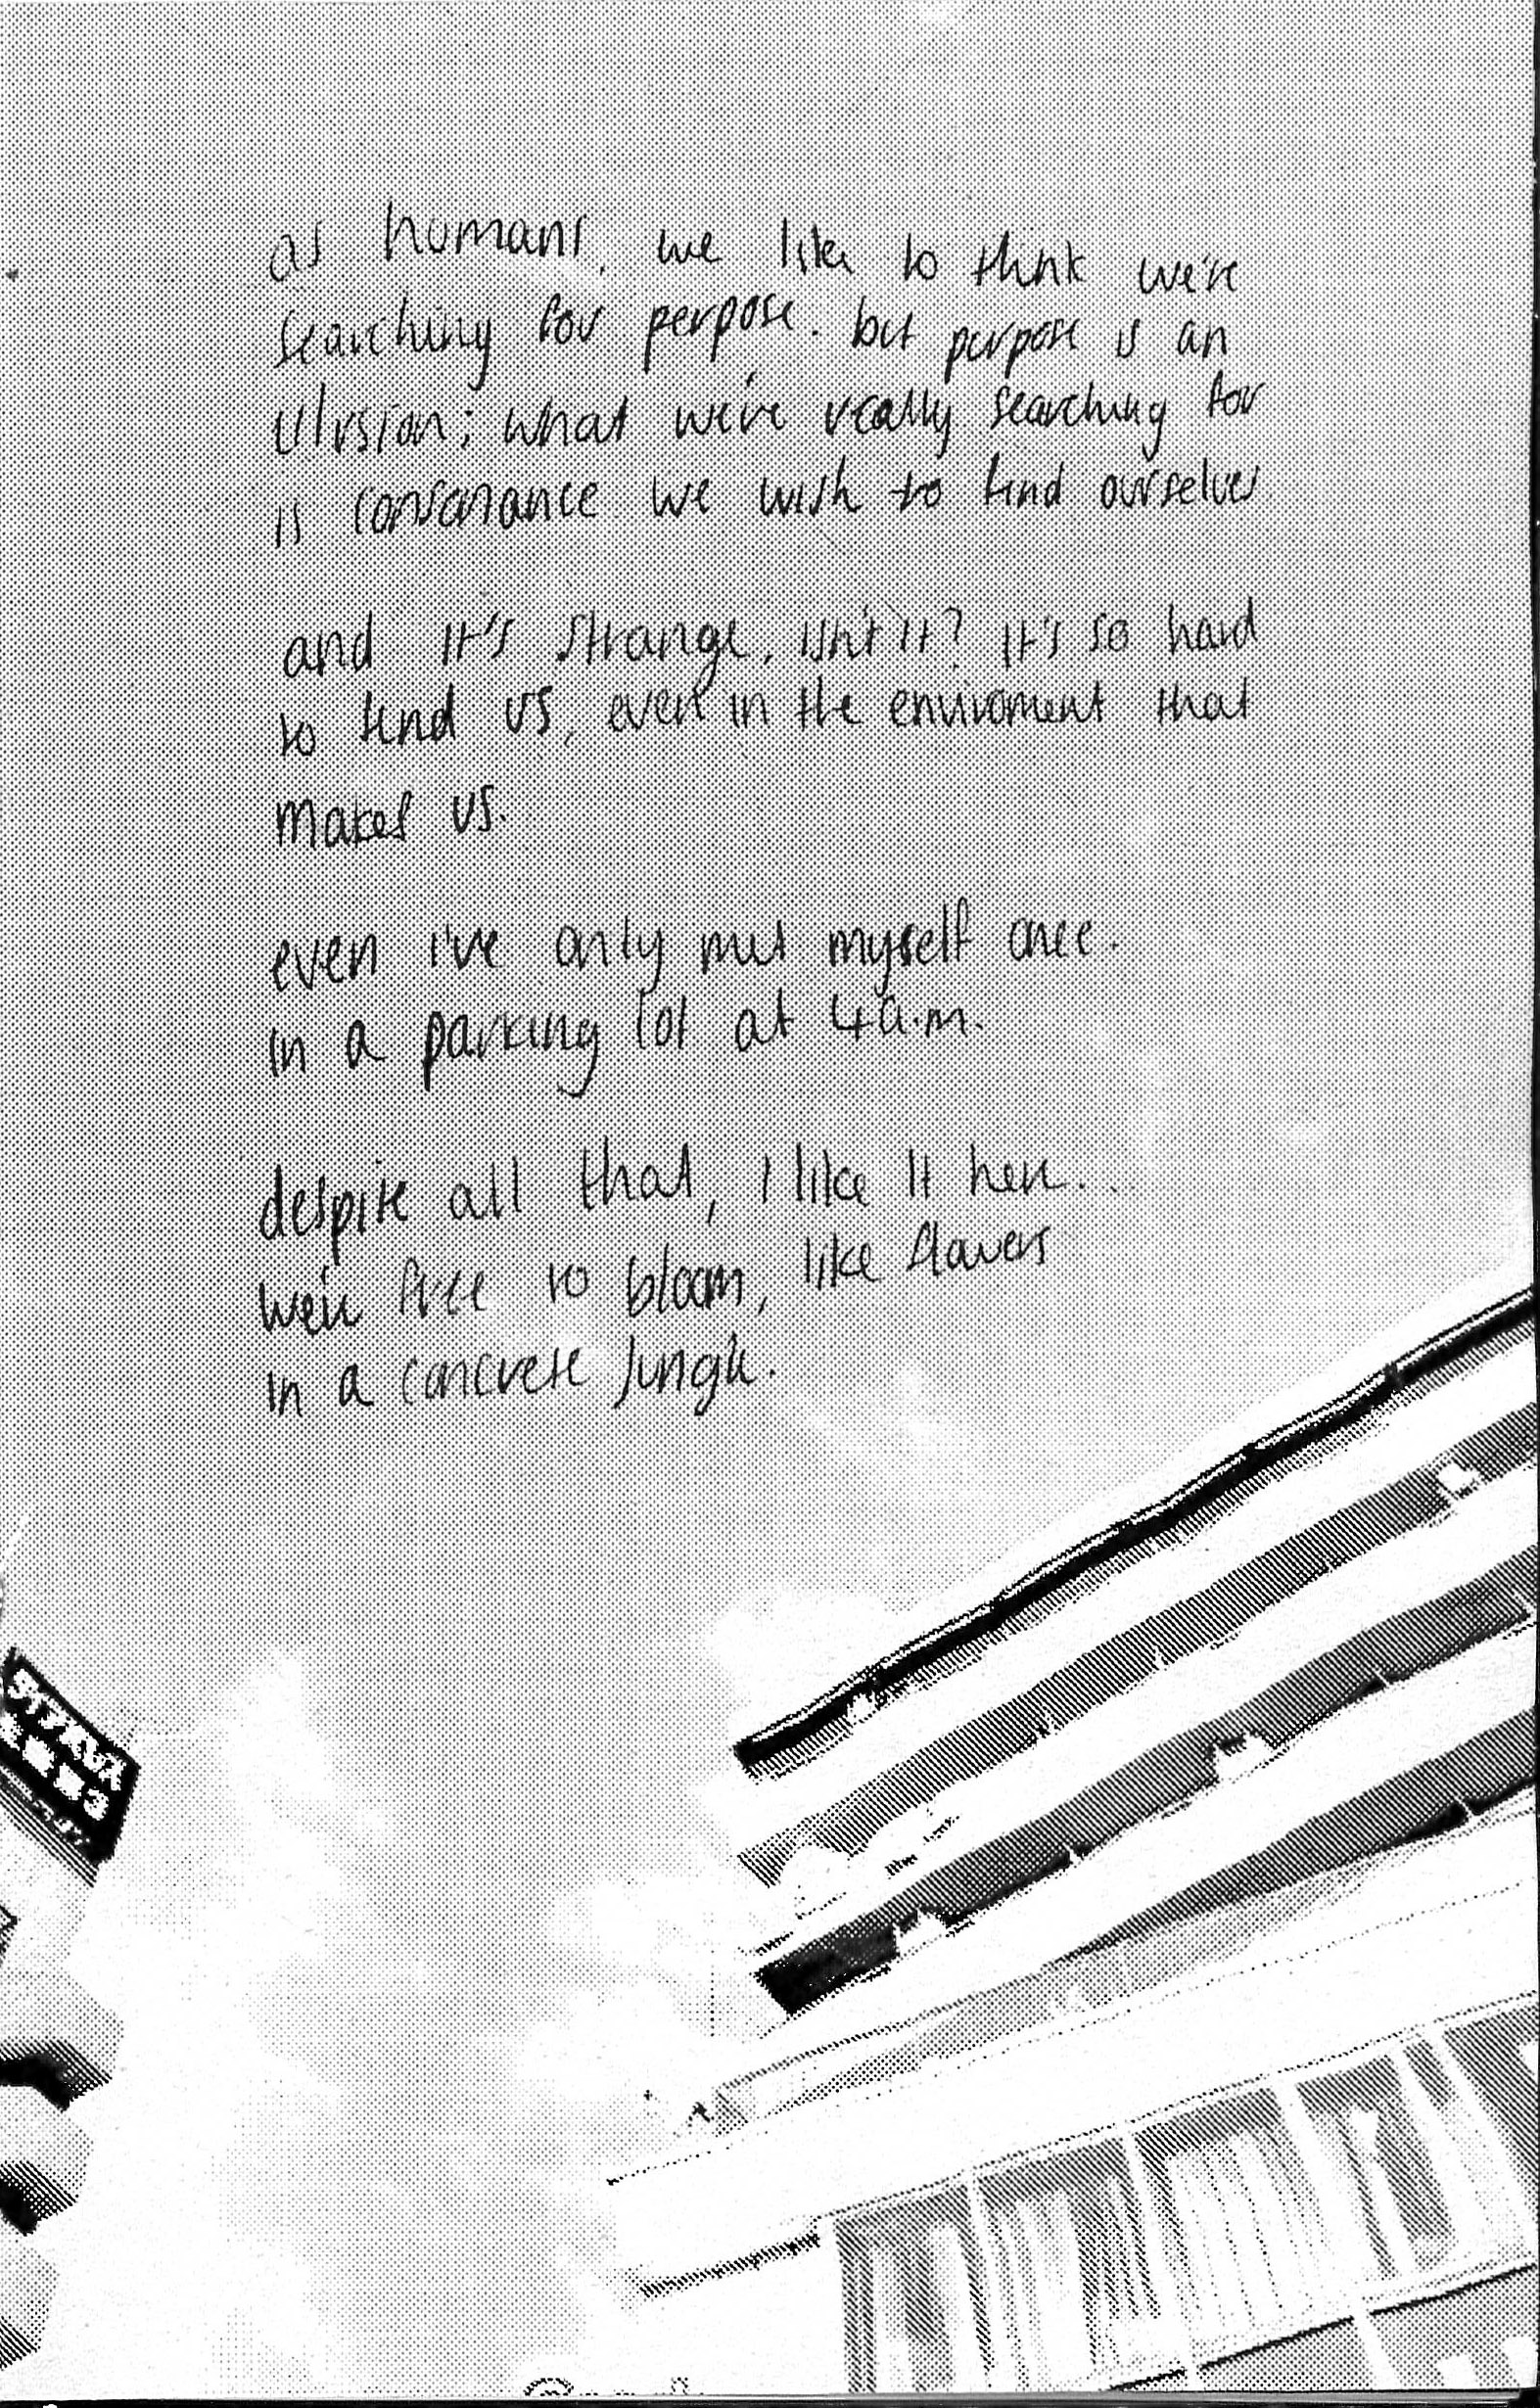 as humans, we like to think we're
searching for perpose. but purpose is an
illusion; what we're really searching for
is consonance we wish to find ourselves
and it's strange, isn't it? it's so hard
to find us, even in the enviroment that
makes us.
even i've only met myself once.
in a parking lot at 4a.m.
despite all that, i like it here...
we're free to bloom, like flowers
in a concrete jungle.